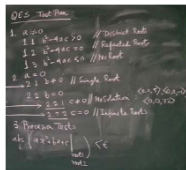 QES Test Plan
1. a ≠ 0
1.1 b²-4ac > 0 // Distinct Roots
1.2 b²-4ac = 0 // Repeated Roots
1.3 b²-4ac < 0 // No Root
2. a = 0
2.1 b ≠ 0 // Single Root
2.2 b = 0
2.2.1 c ≠ 0 // No Solution
2.2.2 c = 0 // Infinite Roots
3. Process Tests
abs ( ax²+bx+c | ) ≤ ε
root1
root2